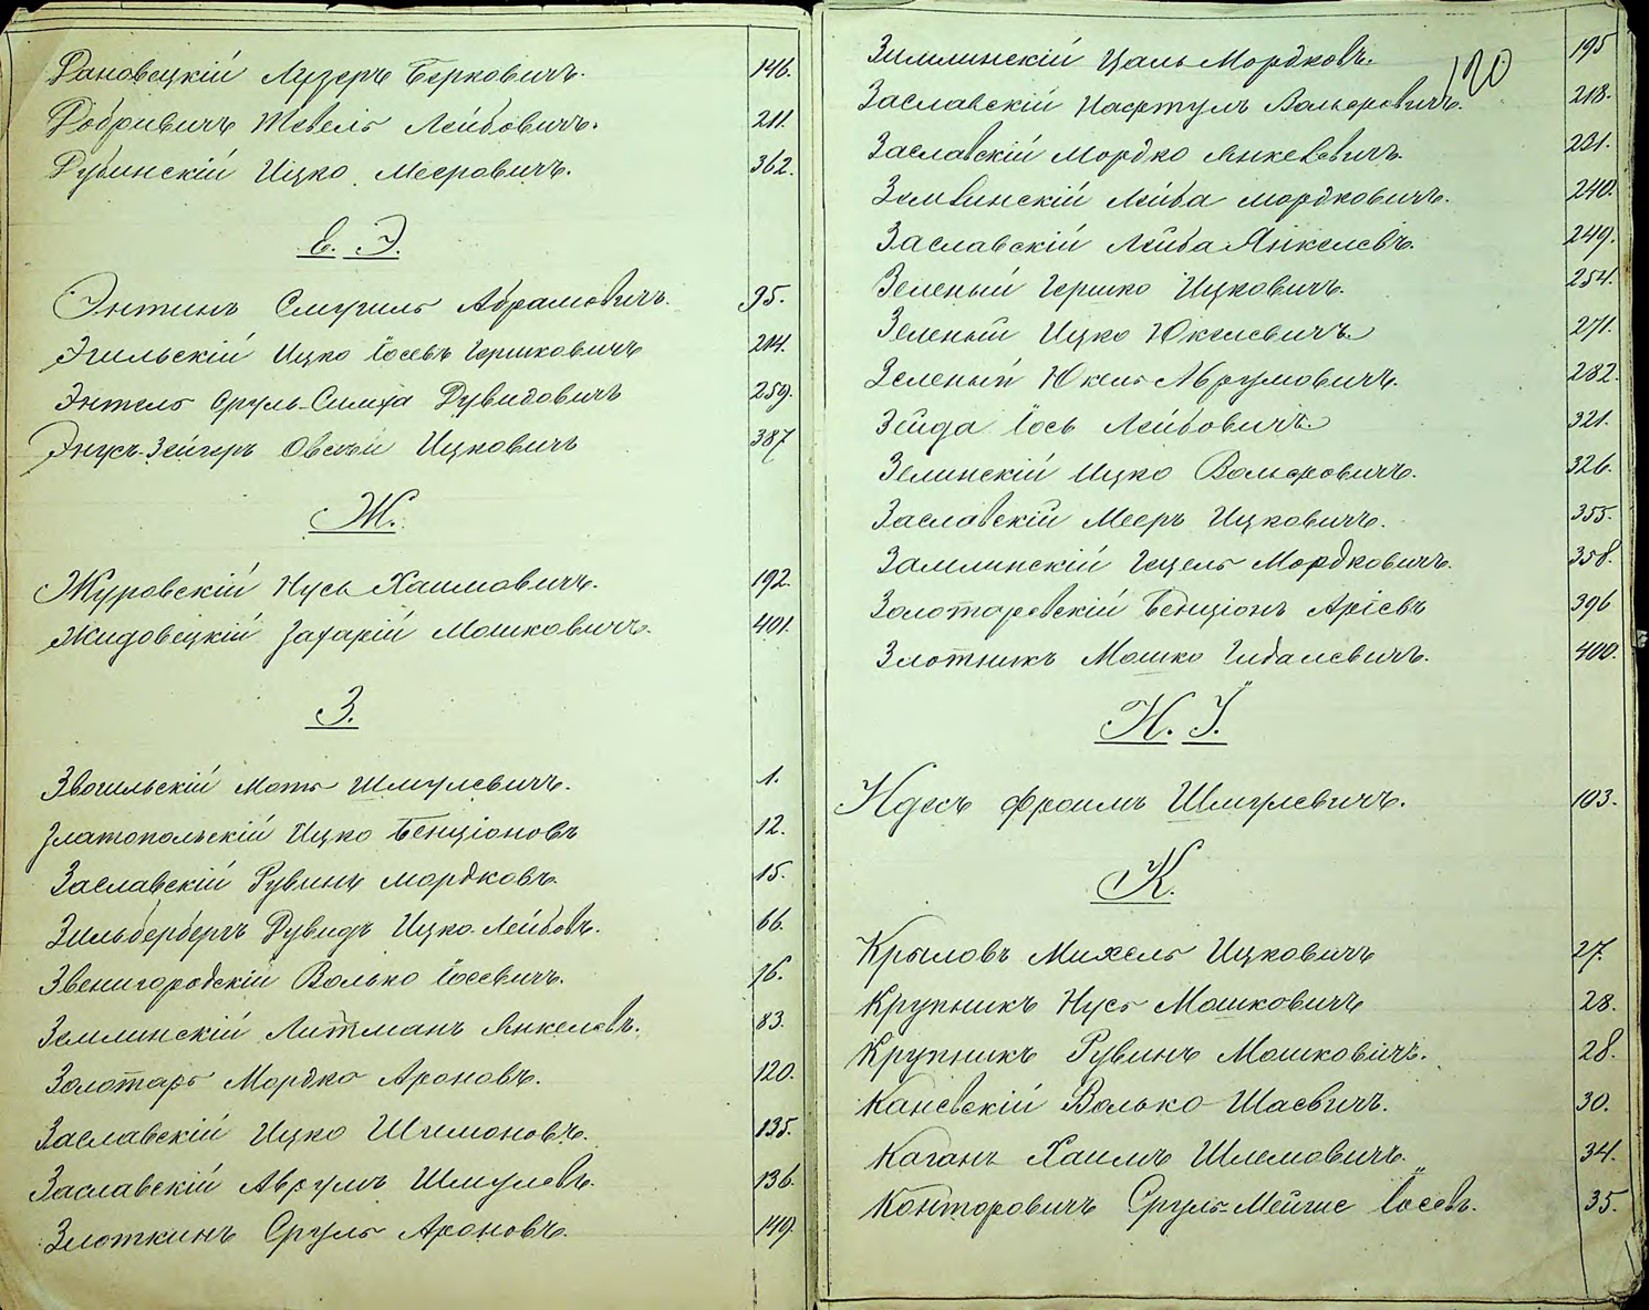 Рановецкій Лузеръ Берковичъ. 146.
Добривичъ Тевель Лейбовичъ. 211.
Рубинскій Ицко Мееровичъ. 362.
Е. Э.
Энтинъ Смуиль Абрамовичъ. 95.
Эгильскій Ицко Іосевъ Гершковичъ 214.
Энтель Сруль-Симха Дувидовичъ 259.
Энусъ-Зейгеръ Овсѣй Ицковичъ 387
Ж.
Журовскій Нусь Хаимовичъ. 192.
Жидовецкій Захарій Мошковичъ. 401.
З.
Звогильскій Моть Шмулевичъ. 1.
Златопольскій Ицко Бенціоновъ 12.
Заславскій Рувинъ Мордковъ. 15.
Зильбербергъ Дувидъ Ицко-Лейбовъ. 66.
Звенигородскій Волько Іосевичъ. 76.
Землинскій Литманъ Янкелевъ. 83.
Золотарь Мордко Ароновъ. 120.
Заславскій Ицко Шимоновъ. 135.
Заславскій Аврумъ Шмулевъ. 136.
Злоткинъ Сруль Ароновъ. 149.
120
Зимлинскій Цаль Мордковъ. 195
Заславскій Нафтулъ Вольфовичъ. 218.
Заславскій Мордко Янкелевичъ. 231.
Землинскій Лейба Мордковичъ. 240.
Заславскій Лейба Янкелевъ. 249.
Зеленый Гершко Ицковичъ. 254.
Зеленый Ицко Юкелевичъ. 271.
Зеленый Юкель Аврумовичъ. 282.
Зейда Іось Лейбовичъ. 321.
Зелинскій Ицко Вольфовичъ. 326.
Заславскій Мееръ Ицковичъ. 355.
Замлинскій Гецель Мордковичъ. 358.
Золотаревскій Бенціонъ Аріевъ 396
Злотникъ Мошко Гидалевичъ. 400.
И. І.
Идесъ Фроимъ Шмулевичъ. 103.
К.
Крыловъ Михель Ицковичъ 27.
Крупникъ Нусь Мошковичъ 28.
Крупникъ Рувинъ Мошковичъ. 28.
Каневскій Волько Шаевичъ. 30.
Каганъ Хаимъ Шлемовичъ. 34.
Конторовичъ Сруль-Мейше Іосевъ. 35.